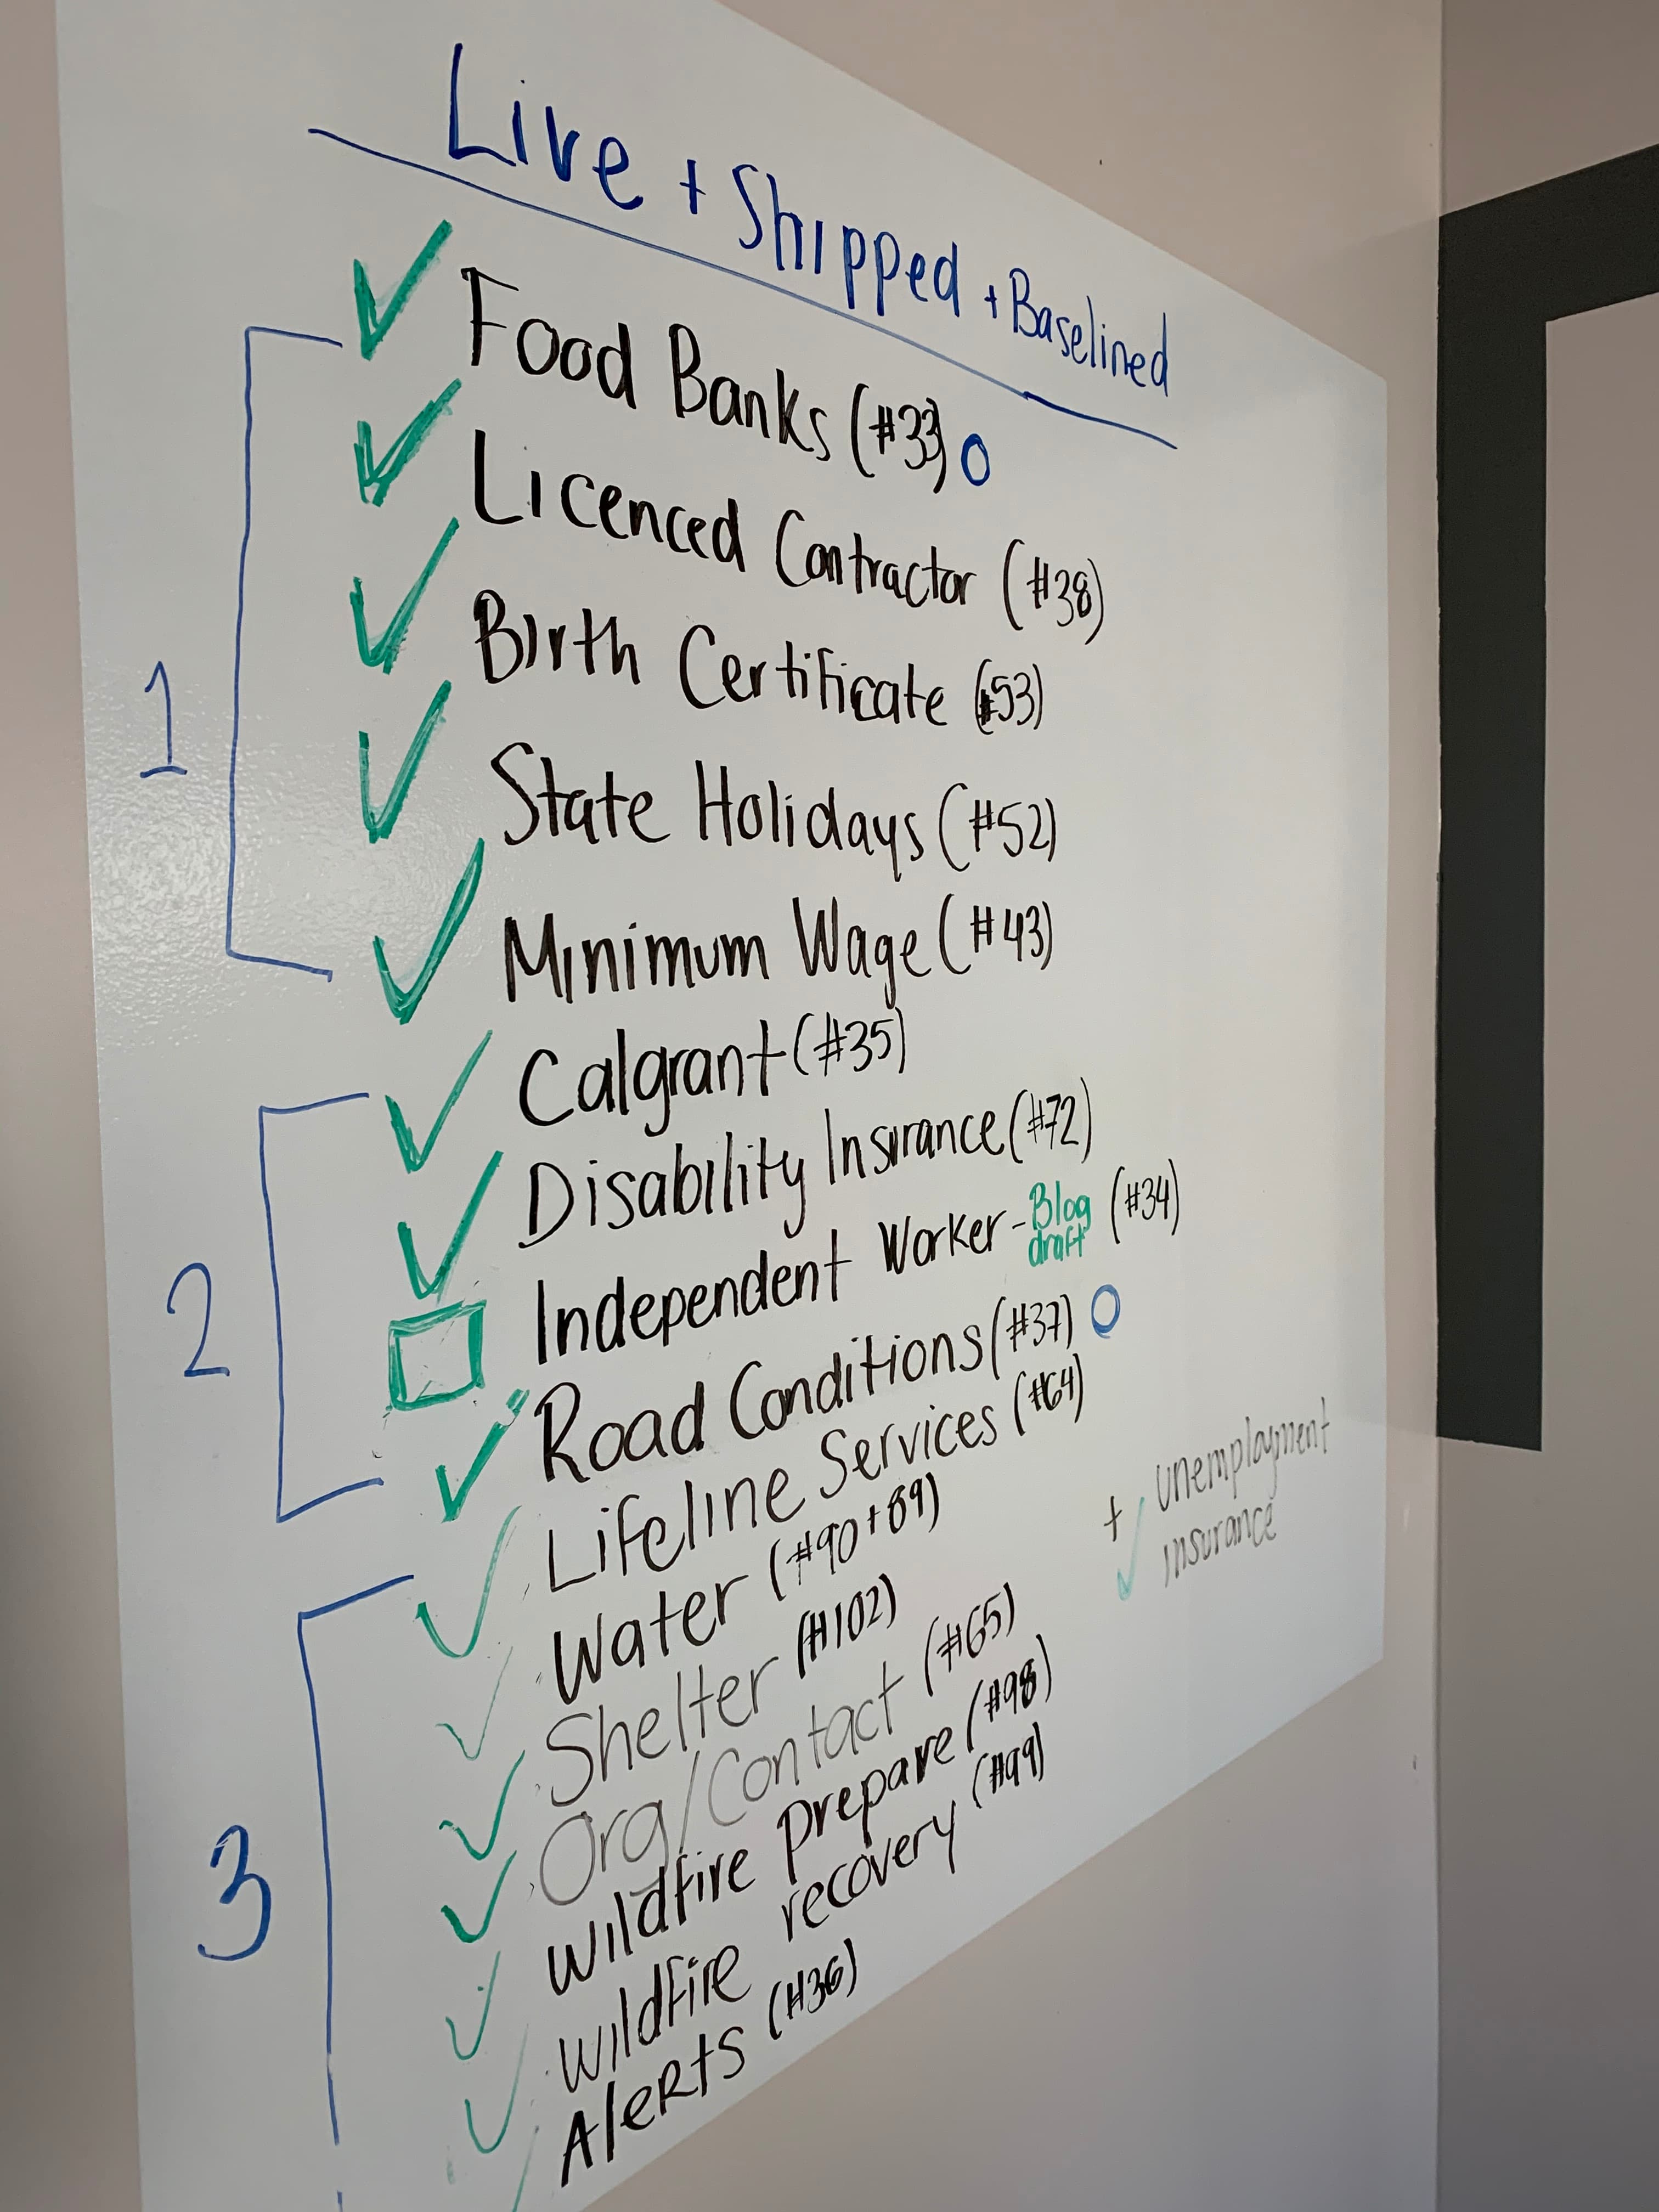 Live + Shipped + Baselined
1
✓ Food Banks (#33) O
✓ Licenced Contractor (#38)
✓ Birth Certificate (#53)
✓ State Holidays (#52)
✓ Minimum Wage (#43)
2
✓ Calgrant (#35)
✓ Disability Insurance (#72)
☐ Independent Worker - Blog draft (#34)
✓ Road Conditions (#37) O
3
✓ Lifeline Services (#64)
✓ Water (#90 + 89)
✓ Shelter (#102)
✓ Org/Contact (#65)
✓ Wildfire prepare (#98)
✓ Wildfire recovery (#99)
✓ Alerts (#36)
+ unemployment
✓ insurance